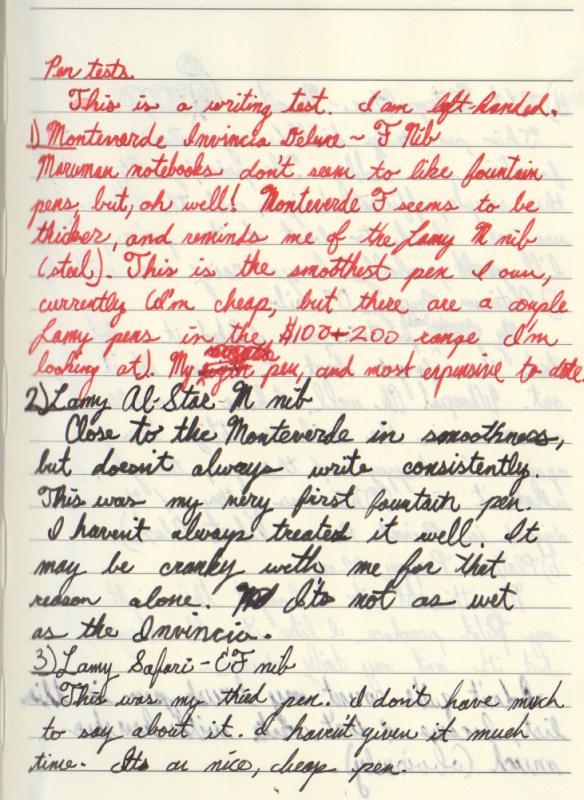 Pen tests.
This is a writing test. I am left-handed.
1) Monteverde Invincia Deluxe ~ F Nib
Maruman notebooks don't seem to like fountain
pens, but, oh well! Monteverde F seems to be
thicker, and reminds me of the Lamy M nib
(steel). This is the smoothest pen I own,
currently (I'm cheap, but there are a couple
Lamy pens in the $100+200 range I'm
looking at). My pen, and most expensive to date.
2) Lamy Al-Star M nib
Close to the Monteverde in smoothness,
but doesn't always write consistently.
This was my very first fountain pen.
I haven't always treated it well. It
may be cranky with me for that
reason alone. It's not as wet
as the Invincia.
3) Lamy Safari - EF nib
This was my third pen. I don't have much
to say about it. I haven't given it much
time. Its a nice, cheap pen.